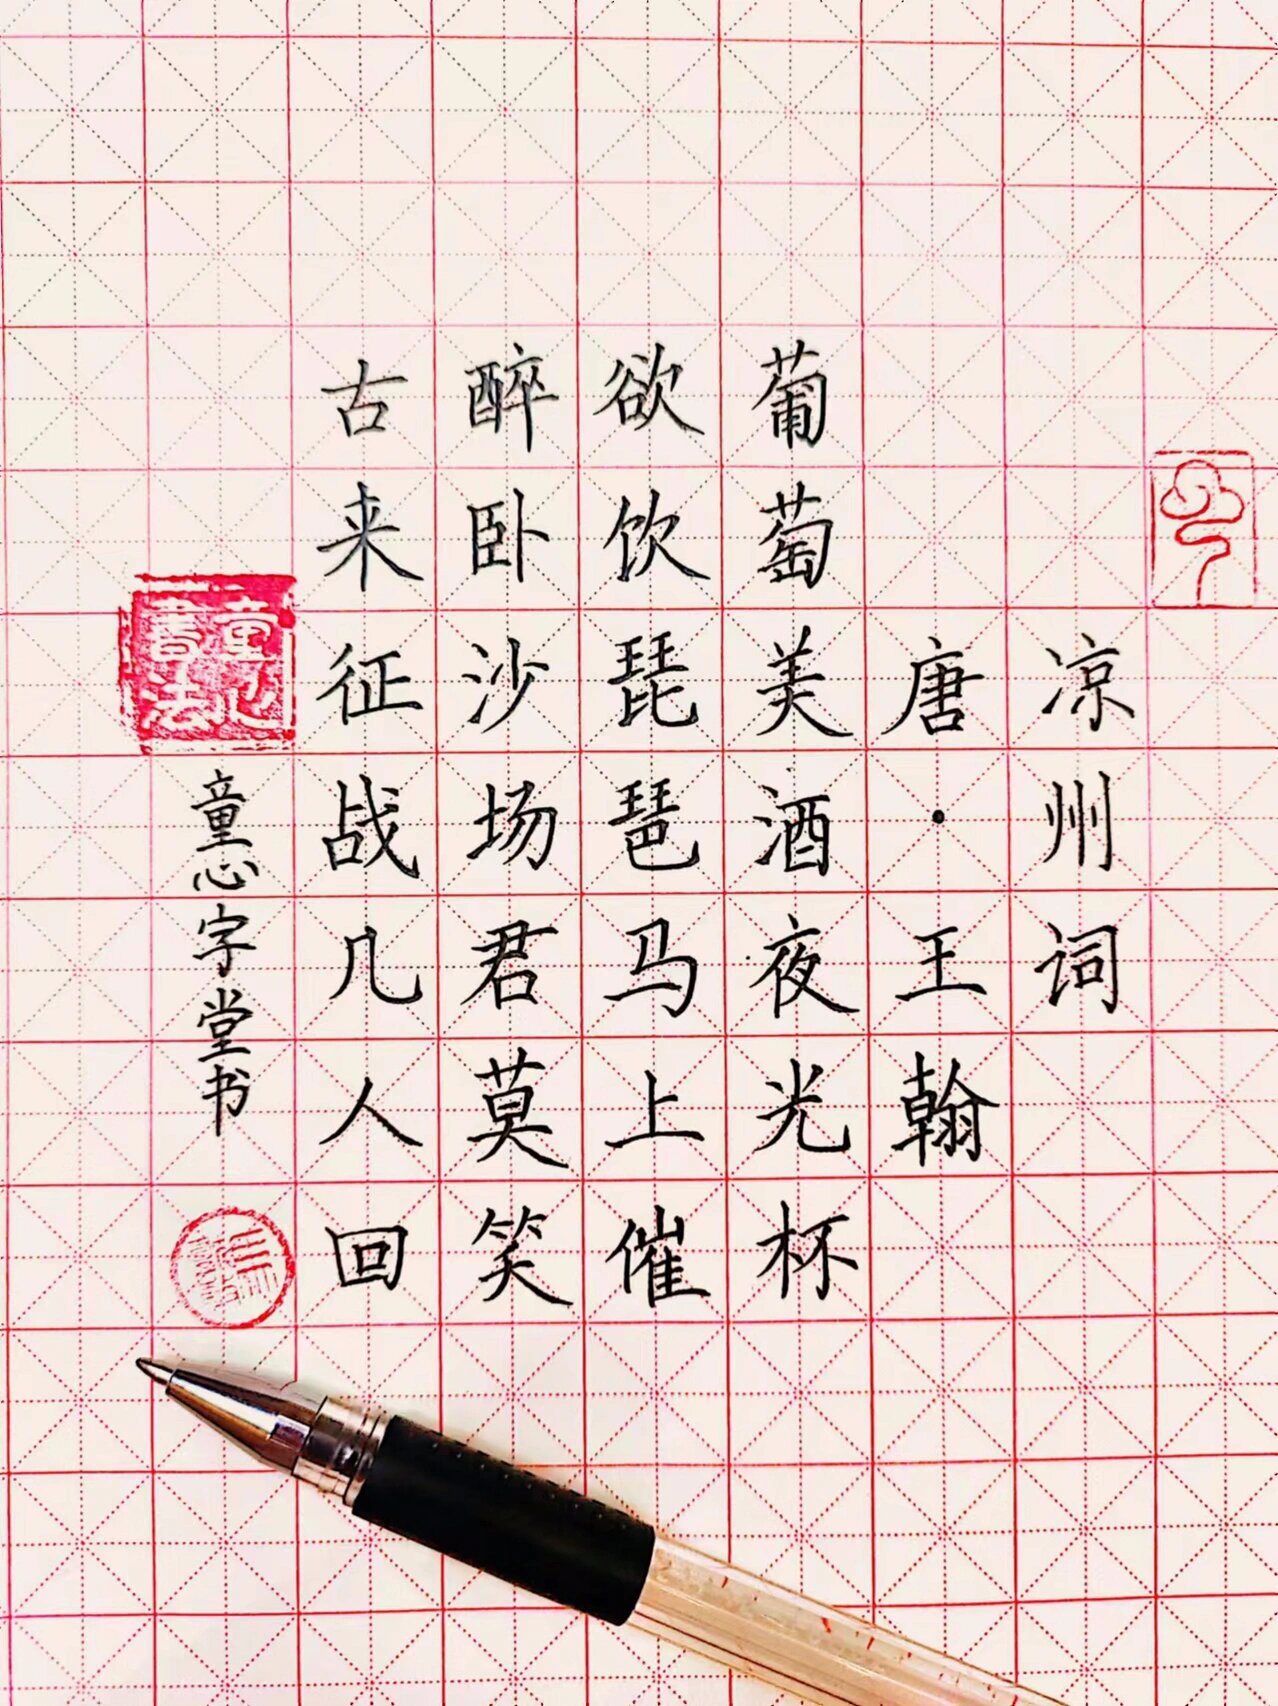 凉州词
唐·王翰
葡萄美酒夜光杯
欲饮琵琶马上催
醉卧沙场君莫笑
古来征战几人回
童心字堂书
童心書法